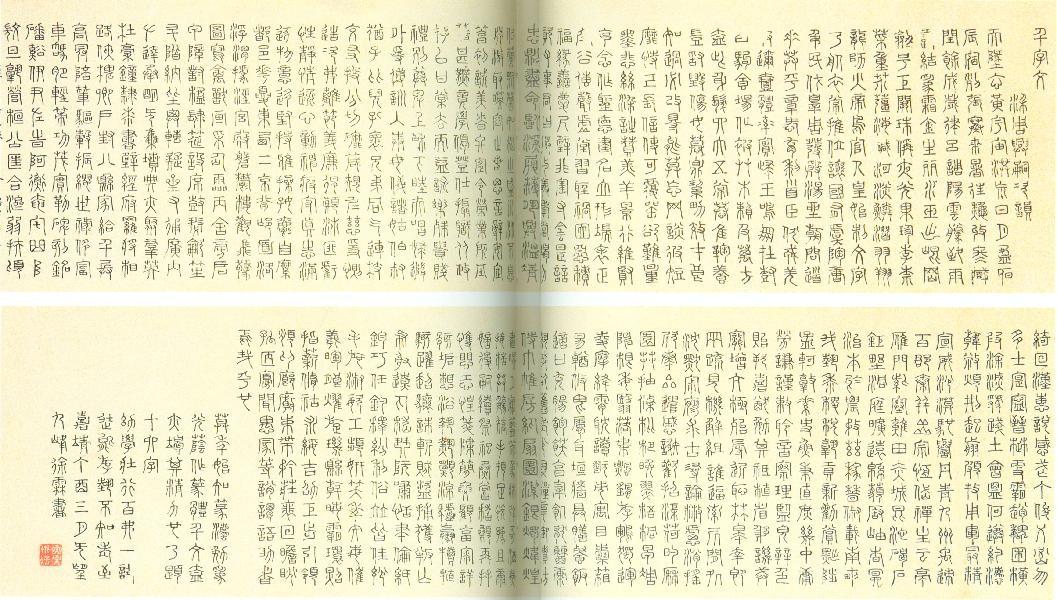 千字文
梁周興嗣次韻
天地玄黃宇宙洪荒日月盈昃
辰宿列張寒來暑往秋收冬藏
閏餘成歲律呂調陽雲騰致雨
露結爲霜金生麗水玉出崑岡
劍號巨闕珠稱夜光果珍李柰
菜重芥薑海鹹河淡鱗潛羽翔
龍師火帝鳥官人皇始制文字
乃服衣裳推位讓國有虞陶唐
弔民伐罪周發殷湯坐朝問道
垂拱平章愛育黎首臣伏戎羌
遐邇壹體率賓歸王鳴鳳在樹
白駒食場化被草木賴及萬方
蓋此身髮四大五常恭惟鞠養
豈敢毀傷女慕貞潔男效才良
知過必改得能莫忘罔談彼短
靡恃己長信使可覆器欲難量
墨悲絲染詩讚羔羊景行維賢
克念作聖德建名立形端表正
空谷傳聲虛堂習聽禍因惡積
福緣善慶尺璧非寶寸陰是競
資父事君曰嚴與敬孝當竭力
忠則盡命臨深履薄夙興溫凊
似蘭斯馨如松之盛川流不息
淵澄取映容止若思言辭安定
篤初誠美慎終宜令榮業所基
籍甚無竟學優登仕攝職從政
存以甘棠去而益詠樂殊貴賤
禮別尊卑上和下睦夫唱婦隨
外受傅訓入奉母儀諸姑伯叔
猶子比兒孔懷兄弟同氣連枝
交友投分切磨箴規仁慈隱惻
造次弗離節義廉退顛沛匪虧
性靜情逸心動神疲守真志滿
逐物意移堅持雅操好爵自縻
都邑華夏東西二京背邙面洛
浮渭據涇宮殿盤鬱樓觀飛驚
圖寫禽獸畫彩仙靈丙舍傍啟
甲帳對楹肆筵設席鼓瑟吹笙
升階納陛弁轉疑星右通廣內
左達承明既集墳典亦聚群英
杜稾鍾隸漆書壁經府羅將相
路俠槐卿戶封八縣家給千兵
高冠陪輦驅轂振纓世祿侈富
車駕肥輕策功茂實勒碑刻銘
磻溪伊尹佐時阿衡奄宅曲阜
微旦孰營桓公匡合濟弱扶傾
綺回漢惠說感武丁俊乂密勿
多士寔寧晉楚更霸趙魏困橫
假途滅虢踐土會盟何遵約法
韓弊煩刑起翦頗牧用軍最精
宣威沙漠馳譽丹青九州禹跡
百郡秦并嶽宗恒岱禪主云亭
雁門紫塞雞田赤城昆池碣石
鉅野洞庭曠遠緜邈巖岫杳冥
治本於農務茲稼穡俶載南畝
我藝黍稷稅熟貢新勸賞黜陟
孟軻敦素史魚秉直庶幾中庸
勞謙謹敕聆音察理鑑貌辨色
貽厥嘉猷勉其祗植省躬譏誡
寵增抗極殆辱近恥林皋幸即
兩疏見機解組誰逼索居閒處
沉默寂寥求古尋論散慮逍遙
欣奏累遣慼謝歡招渠荷的歷
園莽抽條枇杷晚翠梧桐早凋
陳根委翳落葉飄颻遊鵾獨運
凌摩絳霄耽讀翫市寓目囊箱
易輶攸畏屬耳垣牆具膳餐飯
適口充腸飽飫烹宰飢厭糟糠
親戚故舊老少異糧妾御績紡
侍巾帷房紈扇圓潔銀燭煒煌
晝眠夕寐藍筍象床弦歌酒讌
接杯舉觴矯手頓足悅豫且康
嫡後嗣續祭祀烝嘗稽顙再拜
悚懼恐惶牋牒簡要顧答審詳
骸垢想浴執熱願涼驢騾犢特
駭躍超驤誅斬賊盜捕獲叛亡
布射遼丸嵇琴阮嘯恬筆倫紙
鈞巧任釣釋紛利俗並皆佳妙
毛施淑姿工顰妍笑年矢每催
曦暉朗曜璇璣懸斡晦魄環照
指薪修祜永綏吉劭矩步引領
俯仰廊廟束帶矜莊徘徊瞻眺
孤陋寡聞愚蒙等誚謂語助者
焉哉乎也
十四字
幼學壯行百弗一就
嘉靖丁酉三月既望
九峰徐霖書